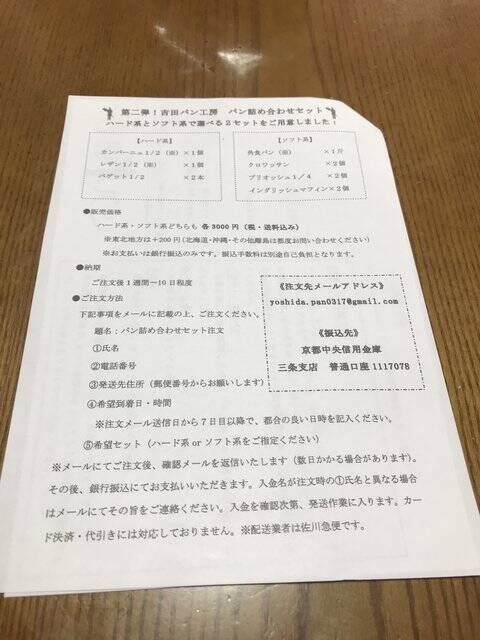 第二弾！吉田パン工房　パン詰め合わせセット
ハード系とソフト系で選べる2セットをご用意しました！
【ハード系】
カンパーニュ1/2（※）×1個
レザン1/2（※）×1個
バゲット1/2 ×2本
【ソフト系】
角食パン（※）×1斤
クロワッサン ×2個
ブリオッシュ1／4 ×2個
イングリッシュマフィン×2個
●販売価格
ハード系・ソフト系どちらも 各3000円（税・送料込み）
※東北地方は＋200円（北海道・沖縄・その他離島は都度お問い合わせください）
※お支払いは銀行振込のみです。振込手数料は別途自己負担となります。
●納期
ご注文後1週間～10日程度
●ご注文方法
下記事項をメールに記載の上、ご注文ください。
題名：パン詰め合わせセット注文
①氏名
②電話番号
③発送先住所（郵便番号からお願いします）
④希望到着日・時間
※注文メール送信日から7日目以降で、都合の良い日時を記入ください。
⑤希望セット（ハード系 or ソフト系をご指定ください）
《注文先メールアドレス》
yoshida.pan0317@gmail.com
《振込先》
京都中央信用金庫
三条支店　普通口座 1117078
※メールにてご注文後、確認メールを返信いたします（数日かかる場合があります）。
その後、銀行振込にてお支払いいただきます。入金名が注文時の①氏名と異なる場合
はメールにてその旨をご連絡ください。入金を確認次第、発送作業に入ります。カー
ド決済・代引きには対応しておりません。※配送業者は佐川急便です。